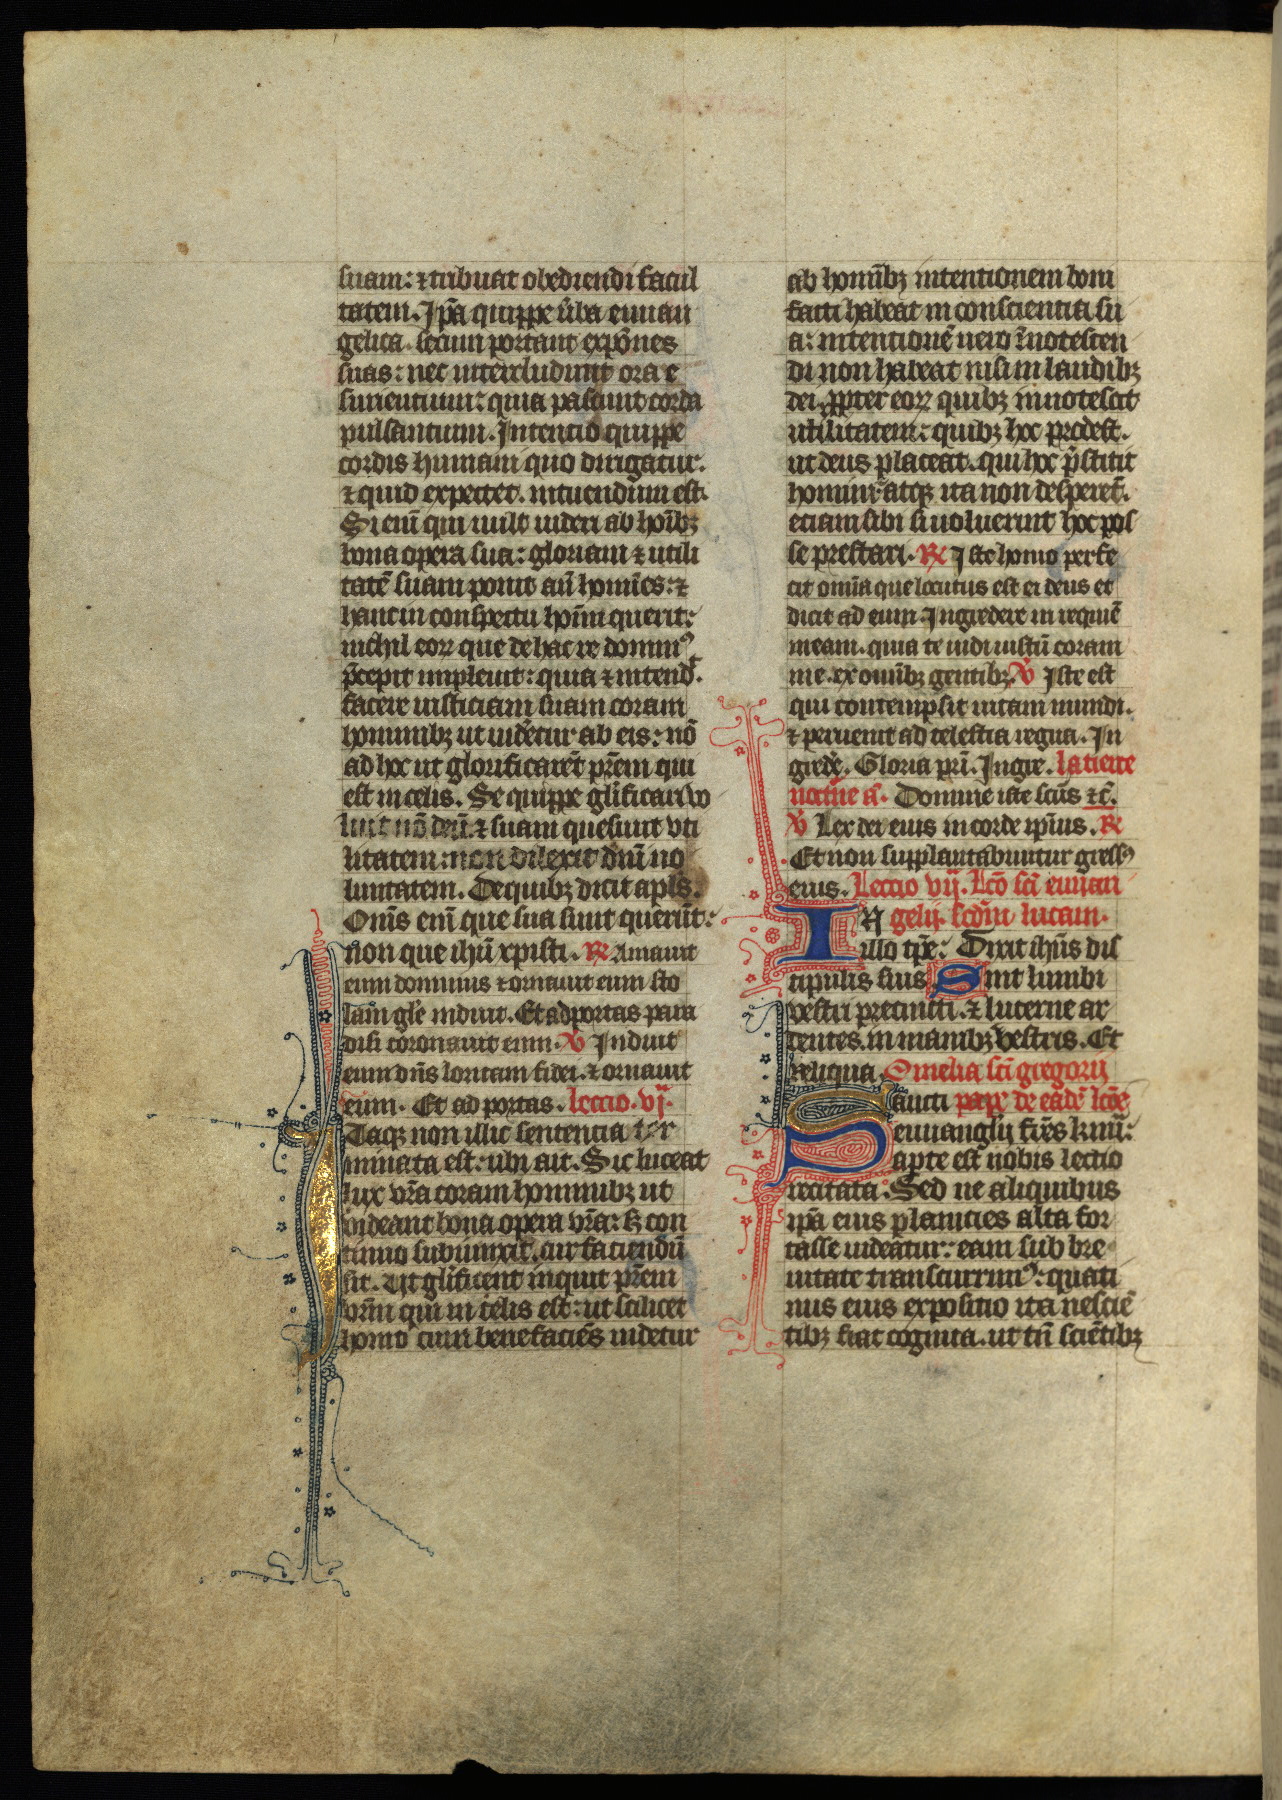 suam: ⁊ tribuat obediendi facul
tatem. Ip̄a quippe ūba euuan
gelica. secum portant expōnes
suas: nec intercludunt ora e
surientium: quia pascunt corda
pulsantium. Intentio quippe
cordis humani quo dirigatur.
⁊ quid expectet. intuendum est.
Si enī qui uult uideri ab hoīb;
bona opera sua: gloriam ⁊ utili
tatē suam ponit an̄ homīes: ⁊
hanc in conspectu hoīm querit:
nichil eoꝝ que de hac re dominꝰ
p̄cepit impleuit: quia ⁊ intend̄.
facere iusticiam suam coram
hominib; ut uidētur ab eis: nō
ad hoc ut glorificarēt pr̄em qui
est in celis. Se quippe gl̄ificari uo
luit nō deū. ⁊ suam quesiuit uti
litatem: non dilexit dn̄i uo
luntatem. De quib; dicit apl̄s.
Om̄s enī que sua sunt querūt:
non que ihū xpisti. ℟ Amauit
eum dominus ⁊ ornauit eum sto
lam gl̄e induit. Et ad portas para
disi coronauit eum. ℣ Induit
eum dn̄s loricam fidei. ⁊ ornauit
eum. Et ad portas. Lectio. vj.
Itaq; non illic sententia ter
minata est: ubi ait. Sic luceat
lux ūra coram hominib; ut
uideant bona opera ūra: s; con
tinuo subiunxit. cur faciendū
sit. Ut gl̄ificent inquit pr̄em
ūrm qui in celis est: ut scilicet
homo cum benefaciēs uidetur
ab homīb; intentionem boni
facti habeat in conscientia su
a: intentionē uero īnotescen
di non habeat nisi in laudib;
dei. ꝓpter eoꝝ quib; innotescit
utilitatem: quib; hoc prodest.
ut deus placeat. qui hoc p̄stitit
homini: atq; ita non desperēt.
etiam sibi si uoluerint hoc pos
se prestari. ℟ Iste homo perfe
cit omīa que locutus est ei deus et
dicit ad eum Ingredere in requiē
meam. quia te uidi iustū coram
me. ex omīb; gentib;. ℣ Iste est
qui contempsit uitam mundi.
⁊ peruenit ad celestia regna. In
gredē. Gloria pr̄i. Ingre. la tierce
noct̄ne a͂. Domine iste scūs ⁊c̄.
℣ Lex dei eius in corde ip̄ius. ℟
Et non supplantabuntur gressꝰ
eius. Lectio vij. Lcō scī euuan
IN gelij. scd̄m lucam.
illo tp̄e: Dixit ihūs dis
cipulis suis Sint lumbi
vestri precincti. ⁊ lucerne ar
dentes. in manib; vestris. Et
reliqua. Omelia scī gregorij
Sancti pape de eadē lcōe
euuanglij fr̄es km̄i:
aperte est nobis lectio
recitata. Sed ne aliquibus
ip̄a eius planicies alta for
tasse uideatur: eam sub bre
uitate transcurrimꝰ: quati
nus eius expositio ita nesciē
tib; fiat cognita. ut tn̄ sciētib;